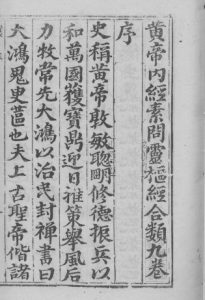 黄帝內經素問靈樞經合類九卷
序
史稱黄帝敦敏聰明修德振兵以
和萬國獲寶鼎迎日推策舉風后
力牧常先大鴻以治民封禪書曰
大鴻鬼臾蓲也夫上古聖帝偕諸